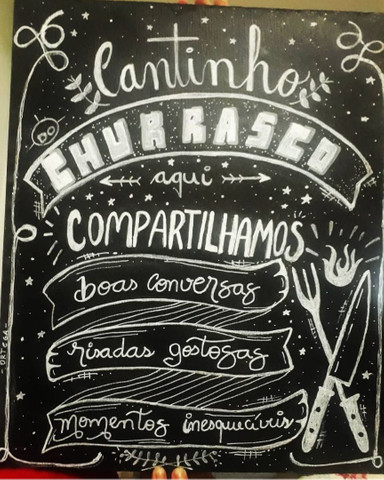 Cantinho
CHURRASCO
aqui
COMPARTILHAMOS
boas conversas
risadas gostosas
momentos inesquecíveis
-ORTEGA-